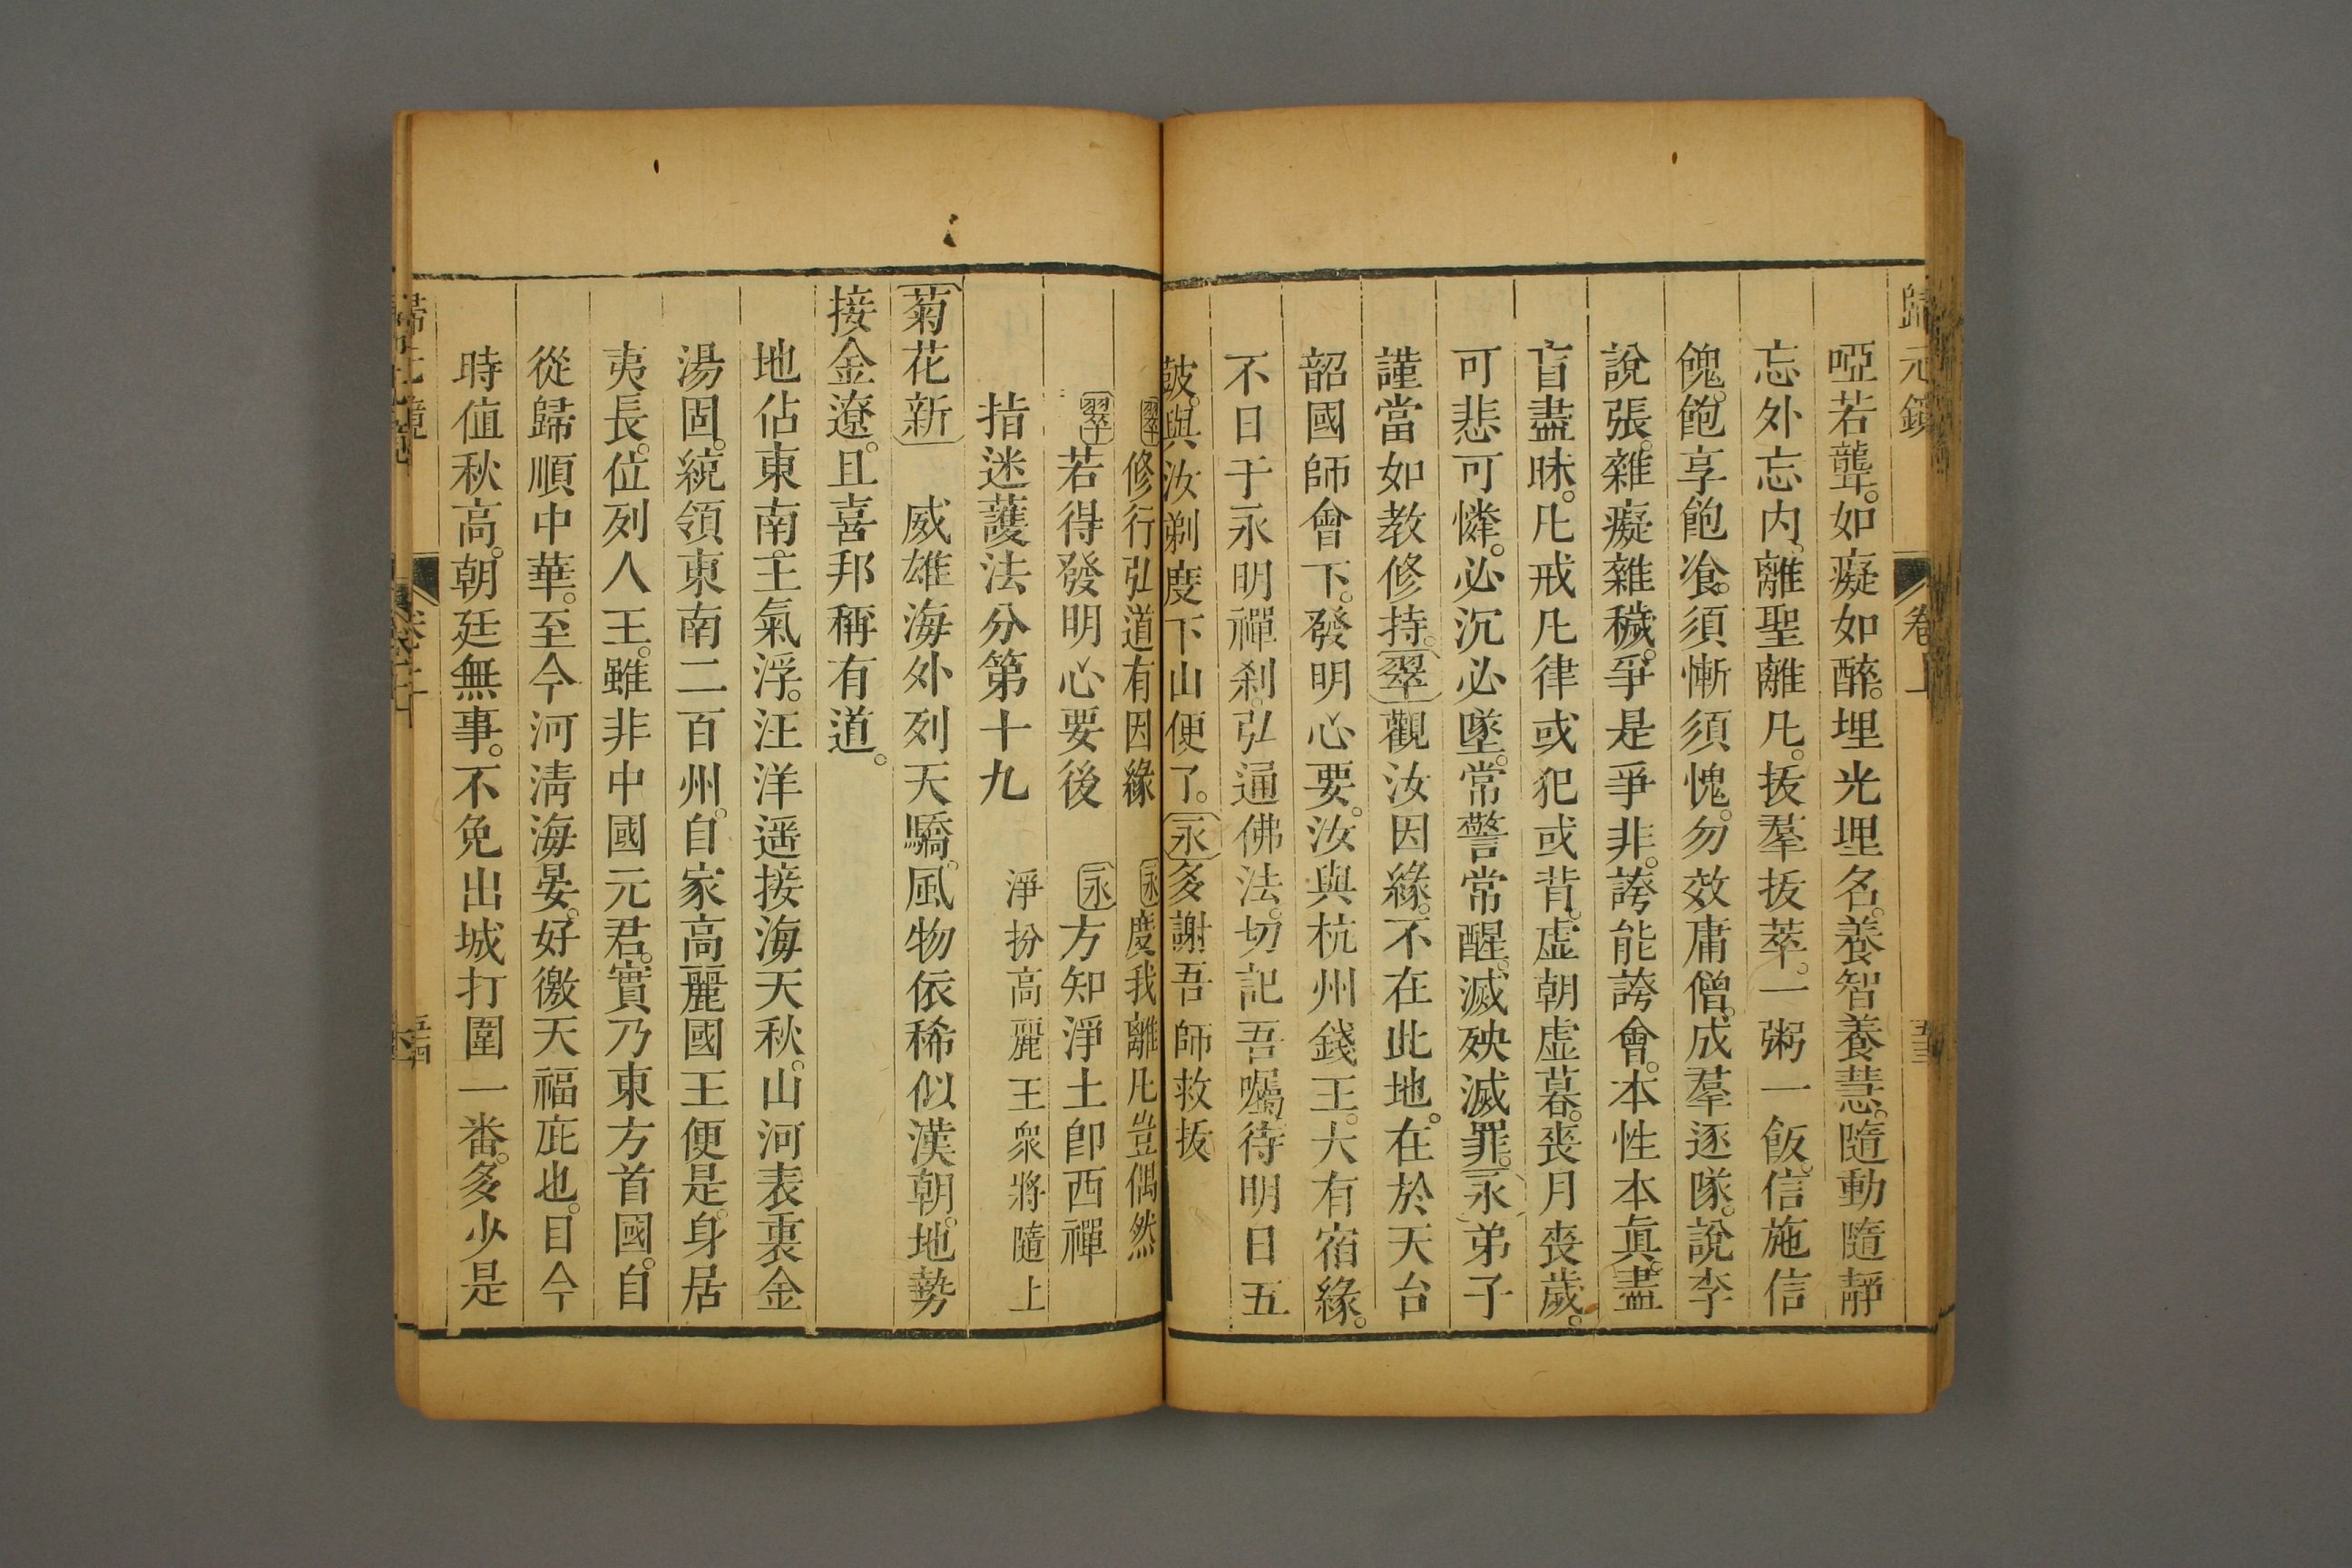 歸元鏡 卷上 五三
啞若聾。如癡如醉。埋光埋名。養智養慧。隨動隨靜
忘外忘内。離聖離凡。拔羣拔萃。一粥一飯。信施信
餽。飽享飽飡。須慚須愧。勿效庸僧。成羣逐隊。說李
說張。雜癡雜穢。爭是爭非。誇能誇會。本性本眞。盡
盲盡昧。凡戒凡律或犯或背。虛朝虛暮。喪月喪歲。
可悲可憐。必沉必墜。常警常醒。滅殃滅罪。永弟子
謹當如教修持。翠觀汝因緣。不在此地。在於天台
韶國師會下。發明心要。汝與杭州錢王。大有宿緣。
不日于永明禪刹。弘通佛法。切記吾囑。待明日五
鼓。與汝剃度下山便了。永多謝吾師救拔
翠修行弘道有因緣 永度我離凡豈偶然
翠若得發明心要後 永方知淨土卽西禪
指迷護法分第十九 淨扮高麗王衆將隨上
菊花新 威雄海外列天驕。風物依稀似漢朝。地勢
接金遼。且喜邦稱有道。
地佔東南王氣浮。汪洋遥接海天秋。山河表裏金
湯固。統領東南二百州。自家高麗國王便是。身居
夷長。位列人王。雖非中國元君。實乃東方首國。自
從歸順中華。至今河淸海晏。好徼天福庇也。日今
時值秋高。朝廷無事。不免出城打圍一番。多少是